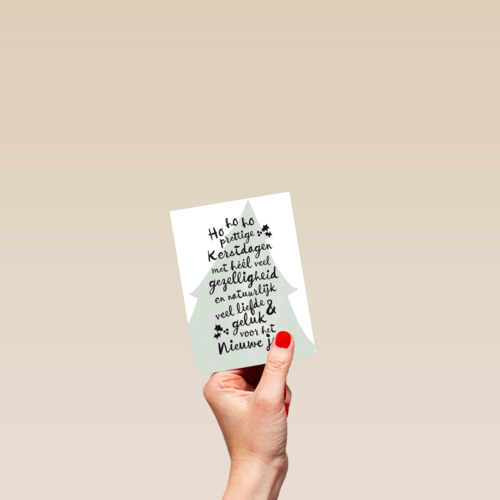 Ho ho ho
prettige
Kerstdagen
met héél veel
gezelligheid
en natuurlijk
veel liefde &
geluk
voor het
Nieuwe j